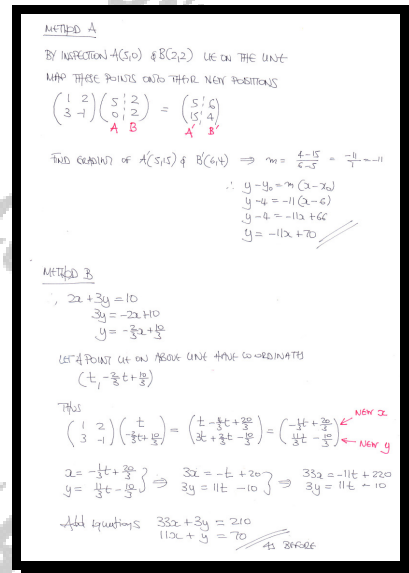 METHOD A
BY INSPECTION A(5,0) & B(2,2) LIE ON THE LINE
MAP THESE POINTS ONTO THEIR NEW POSITIONS
(1 2; 3 -1) (5 2; 0 2) = (5 6; 15 4)
A B A' B'
FIND GRADIENT OF A'(5,15) & B'(6,4) ⇒ m = 4-15/6-5 = -11/1 = -11
∴ y-y₀ = m(x-x₀)
y-4 = -11(x-6)
y-4 = -11x+66
y = -11x+70
METHOD B
2x+3y = 10
3y = -2x+10
y = -2/3x + 10/3
LET A POINT LIE ON ABOVE LINE HAVE CO-ORDINATES
(t, -2/3t + 10/3)
THUS
(1 2; 3 -1) (t; -2/3t + 10/3) = (t - 4/3t + 20/3; 3t + 2/3t - 10/3) = (-1/3t + 20/3; 11/3t - 10/3)
NEW x
NEW y
x = -1/3t + 20/3 } ⇒ 3x = -t + 20 } ⇒ 33x = -11t + 220
y = 11/3t - 10/3 } 3y = 11t - 10 } 3y = 11t - 10
Add equations 33x + 3y = 210
11x + y = 70
AS BEFORE